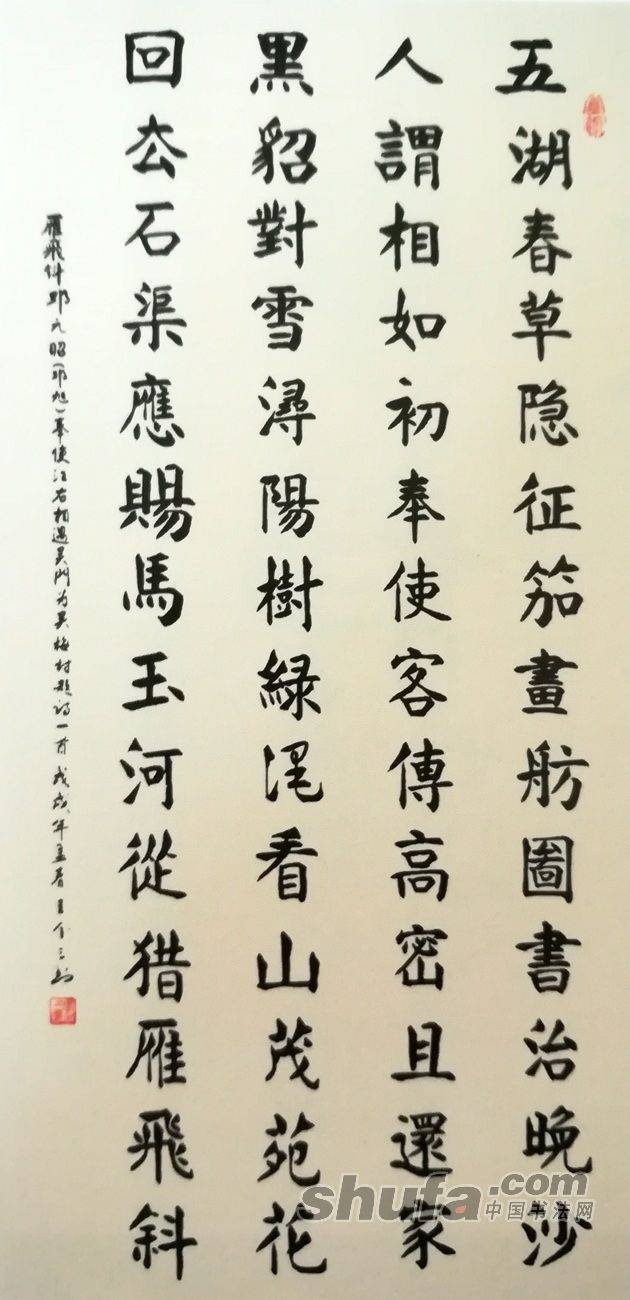 五湖春草隐征笳畫舫圖書治晚沙
人謂相如初奉使客傳高密且還家
黑貂對雪潯陽樹綠滬看山茂苑花
回厺石渠應賜馬玉河從猎雁飛斜
雁飛斜 邓元昭(邓旭)奉使江右相遇吴門为吴梅村题诗一首 戊戌年孟春
shufa.com
中国书法网